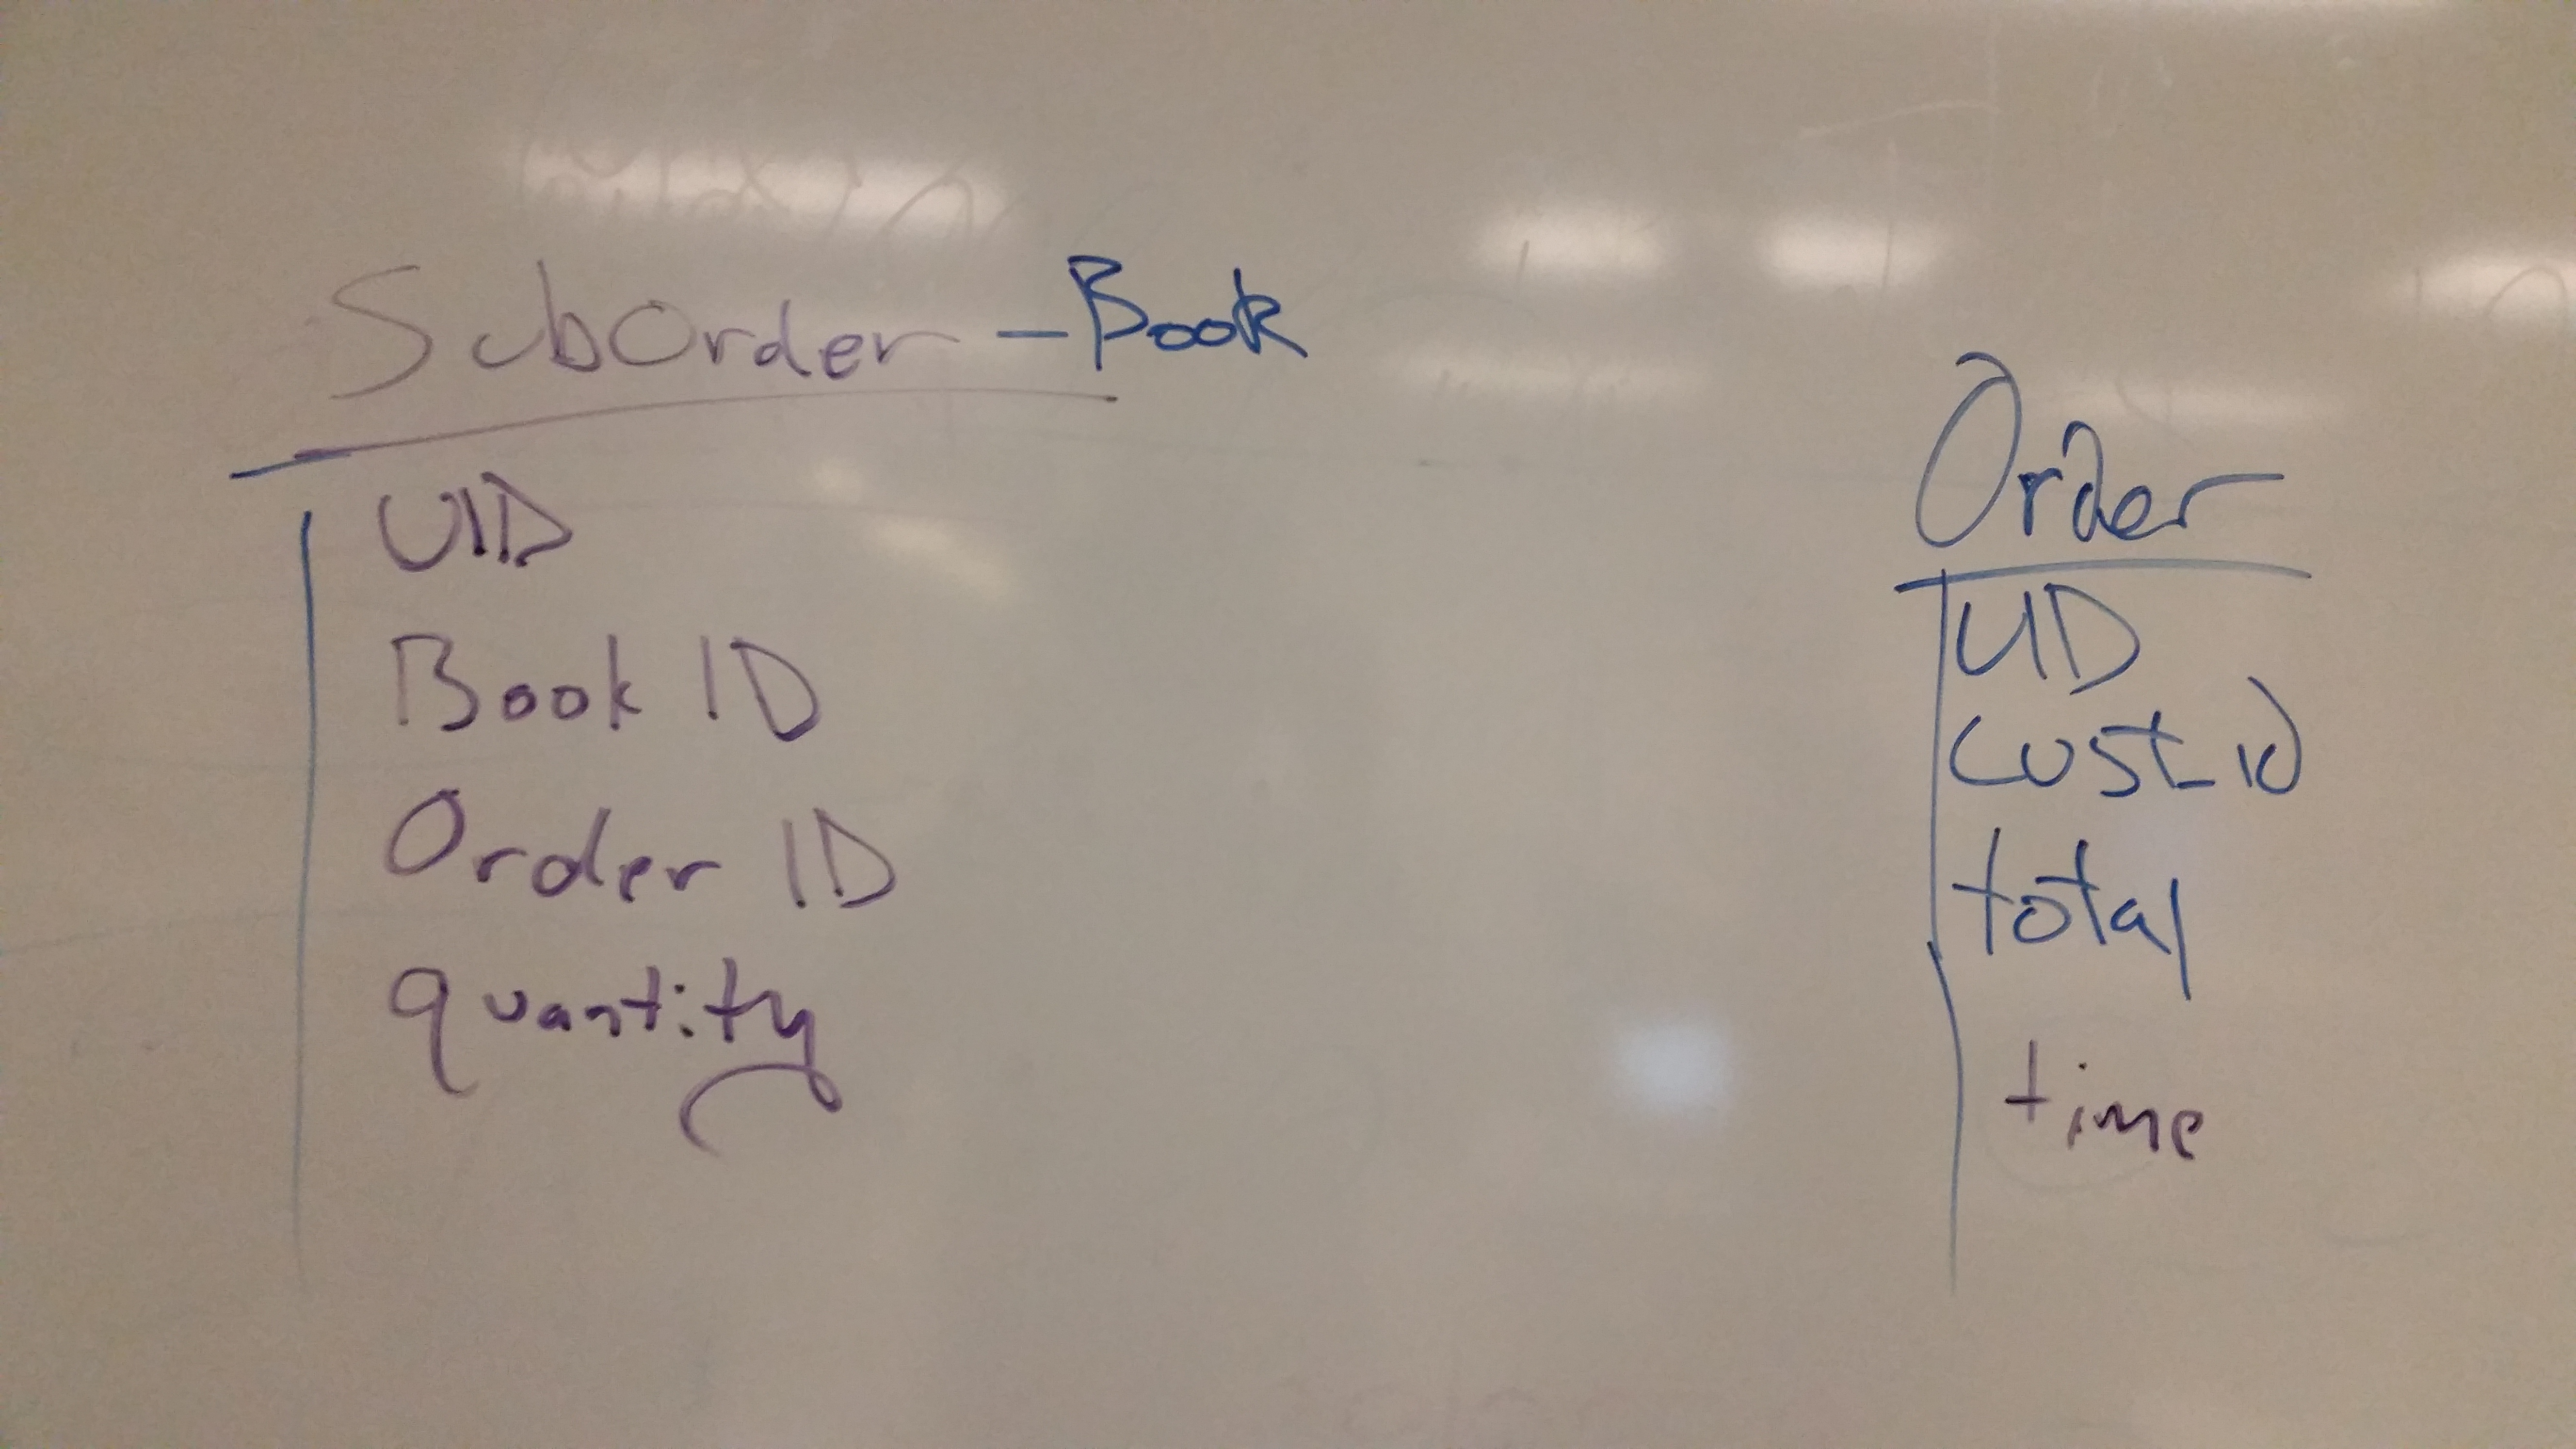 SubOrder - Book
UID
Book ID
Order ID
quantity
Order
UID
cust_id
total
time